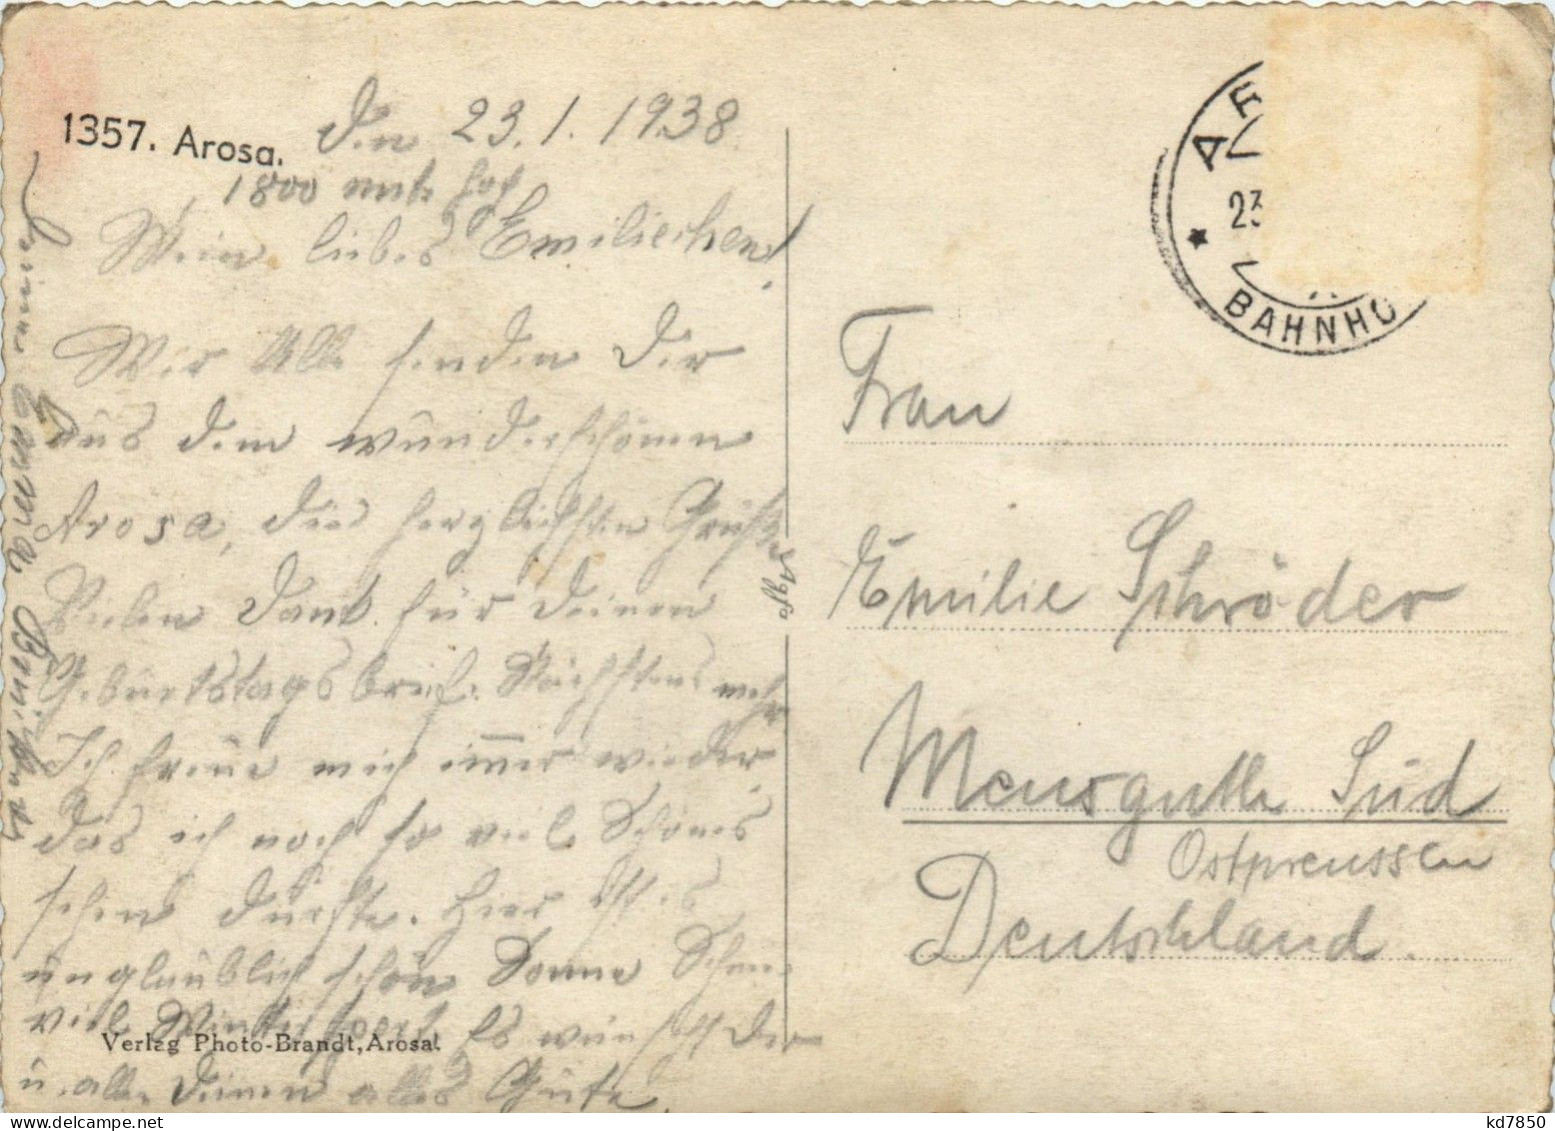 1357. Arosa.
Den 23.1.1938
1800 mtr hoch
Mein liebes Emiliechen!
Wir Alle senden Dir
aus dem wunderschönen
Arosa, die herzlichsten Grüße.
Vielen Dank für Deinen
Geburtstagsbrief. Nächstens mehr
Ich freue mich immer wieder,
das ich noch so viel Schönes
sehen durfte. Hier ist es
unglaublich schön Sonne Schnee
viel Wintersport. Es wünscht Dir
u. allen Deinen alles Gute
Deine Emma
Verlag Photo-Brandt, Arosa.
Agfa
23
BAHNHO
Frau
Emilie Schröder
Mensguth Süd
Ostpreussen
Deutschland.
kd7850